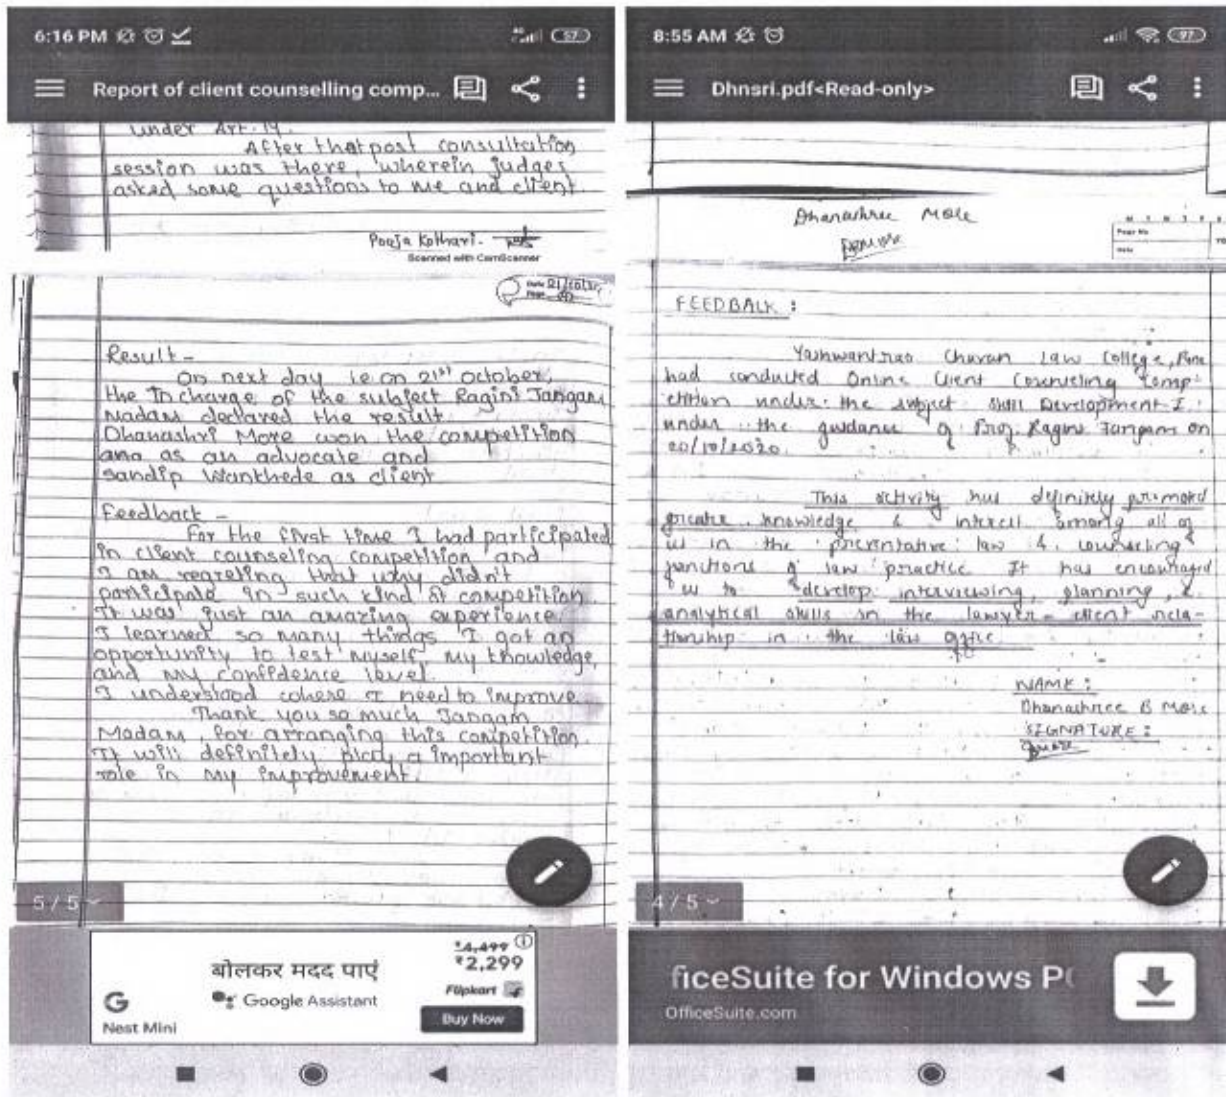 6:16 PM
57
Report of client counselling comp...
under Art. 19.
After that post consultation
session was there, wherein judges
asked some questions to me and client.
Pooja Kothari.
Scanned with CamScanner
Date
Page
Result -
On next day ie on 21st October,
the In charge of the subject Ragini Jangam
Madam declared the result.
Dhanashri More won the competition
ana as an advocate and
sandip Wankhede as client
Feedback -
For the first time I had participated
in client counseling competition and
I am regreting that why didn't
participate in such kind of competition.
It was just an amazing experience
I learned so many things I got an
opportunity to test myself, my knowledge,
and my confidence level.
I understood where I need to improve
Thank you so much Jangam
Madam, for arranging this competition.
It will definitely play a important
role in my improvement.
5/5
बोलकर मदद पाएं
Google Assistant
G
Nest Mini
₹4,499
₹2,299
Flipkart
Buy Now
8:55 AM
97
Dhnsri.pdf<Read-only>
Dhanashree More
Page No
Date
FEEDBACK :
Yashwantrao Chavan Law College, Pune
had conducted Online Client Counseling Comp-
etition under the subject Skill Development-I
under the guidance of Prof. Ragini Jangam on
20/10/2020.
This activity has definitely promoted
greater knowledge & interest among all of
us in the preventative law & counseling
functions of law practice It has encouraged
us to develop interviewing, planning, &
analytical skills in the lawyer-client rela-
tionship in the law office
NAME :
Dhanashree B More
SIGNATURE :
4/5
ficeSuite for Windows P
OfficeSuite.com